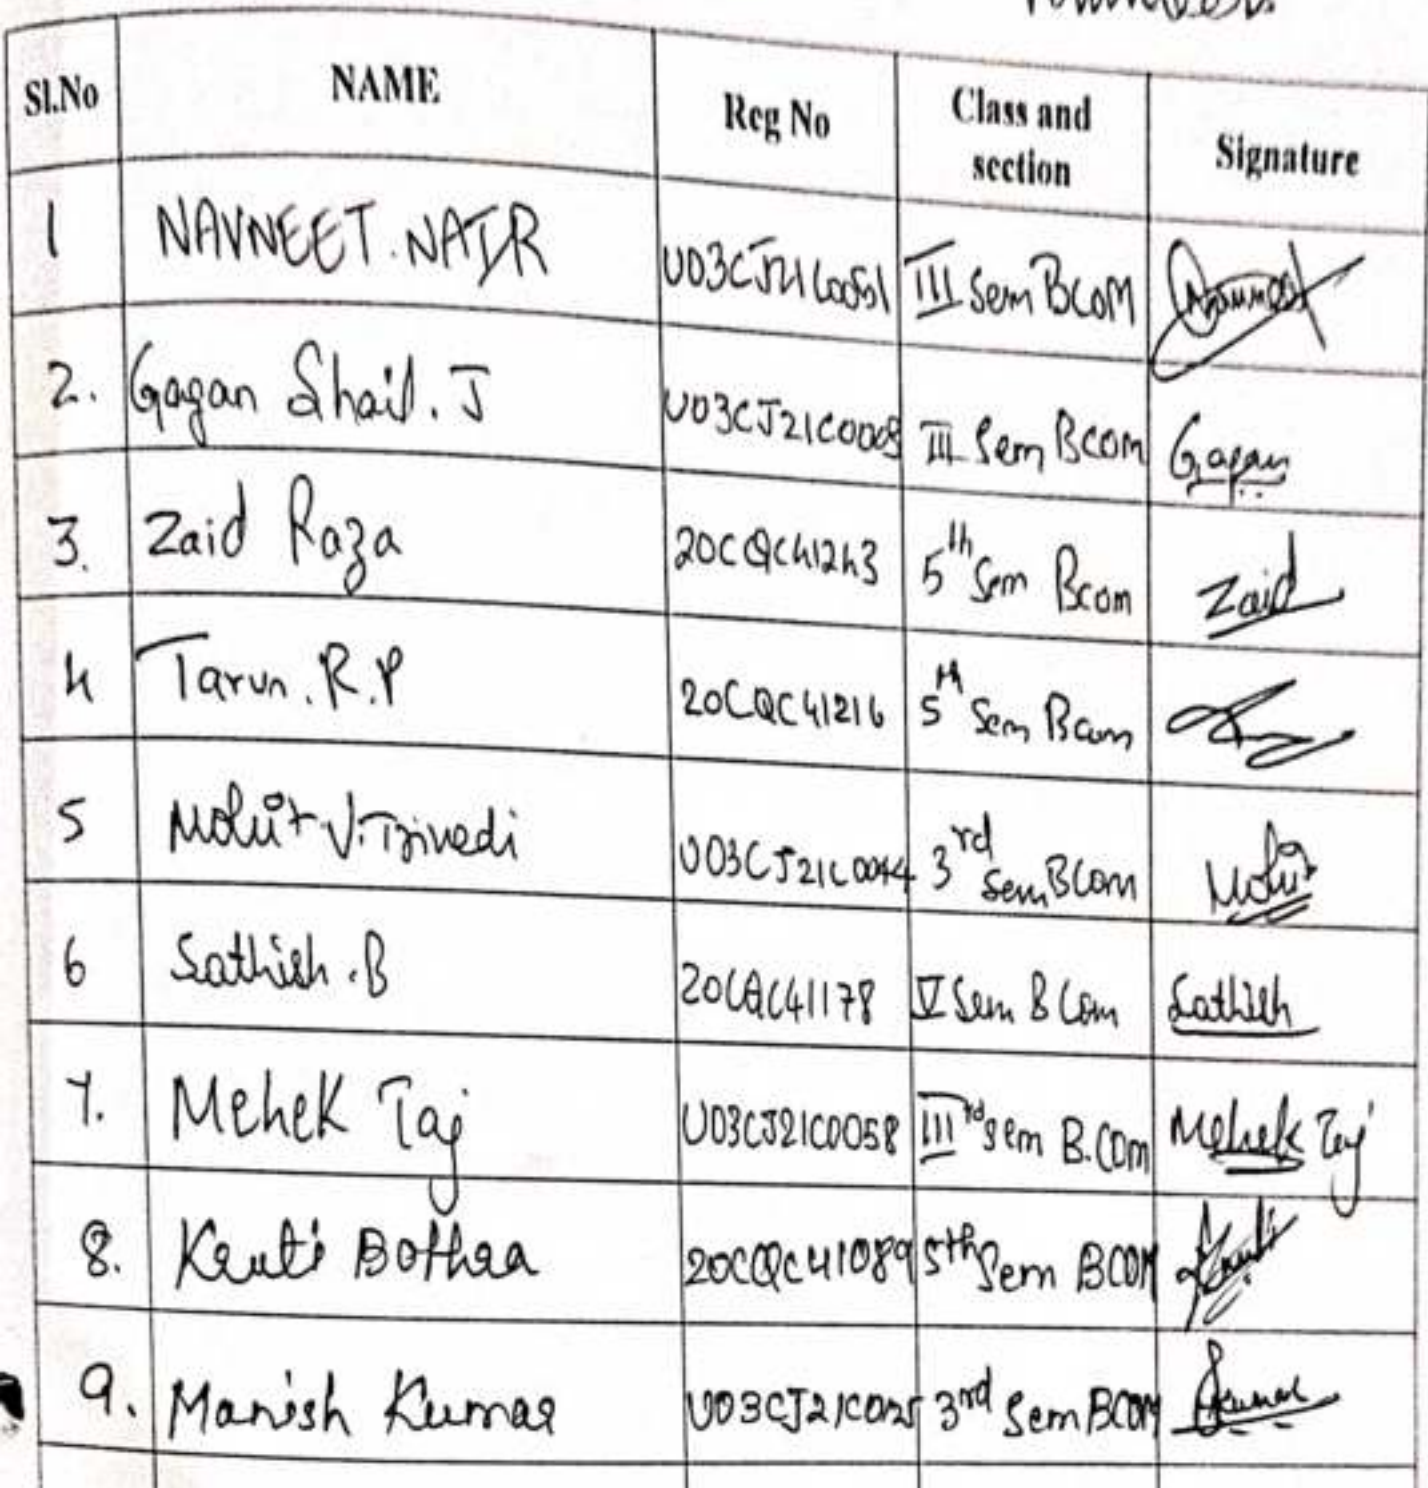 Sl.No NAME Reg No Class and section Signature
1 NAVNEET.NAIR U03CJ21C0051 III Sem BCOM
2. Gagan Shail.J U03CJ21C0003 III Sem BCOM Gagan
3. Zaid Raza 20CQC41243 5th Sem Bcom Zaid
4 Tarun.R.P 20CQC41216 5th Sem Bcom
5 Mohit V.Trivedi U03CJ21C0044 3rd Sem BCom Mohit
6 Sathish.B 20CQC41178 V Sem B Com Sathish
7. Mehek Taj U03CJ21C0058 IIIrd Sem B.COM Mehek Taj
8. Kruti Bothra 20CQC41089 5th Sem BCOM Kruti
9. Manish Kumar 3rd Sem BCOM Kumar